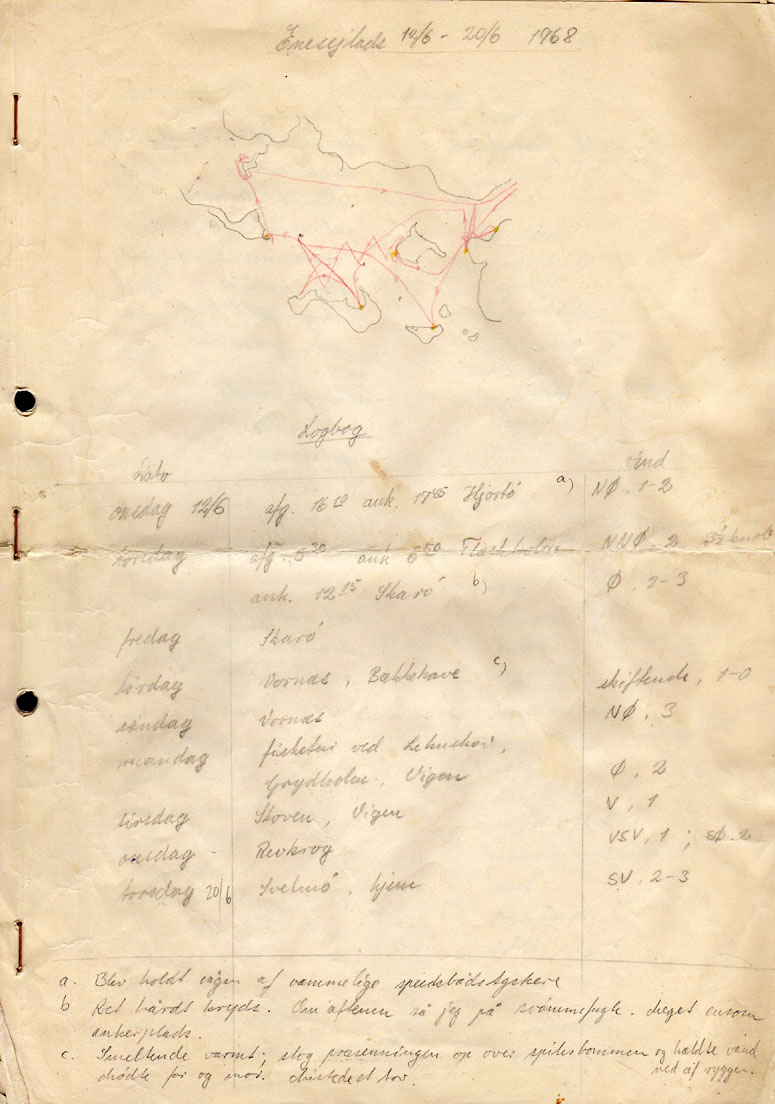 Enesejlads 12/6 - 20/6 1968
Logbog
Dato
Vind
onsdag 12/6 afg. 16 10 ank. 17 45 Hjortö a) NØ. 1-2
torsdag afg. 5 30 ank 6 50 NNØ. 2
ank. 12 15 Skarö b) Ø. 2-3
fredag Skarö
lördag Vornæs, c) skiftende, 1-0
söndag Vornæs NØ. 3
mandag fisketur ved
Grydholm. Vigen Ø. 2
tirsdag Skoven, Vigen V, 1
onsdag Revkrog VSV. 1 ; SØ. 2
torsdag 20/6 Svelmö, hjem SV. 2-3
a. Blev holdt vågen af vammelige speedbådstyskere
b Ret hårdt kryds. Om aftenen så jeg på svömmefugle. Meget ensom
ankerplads.
c. Smeltende varmt; slog presenningen op over spilerbommen og hældte vand
ned af ryggen.
Mödte far og mor. Mistede et tov.